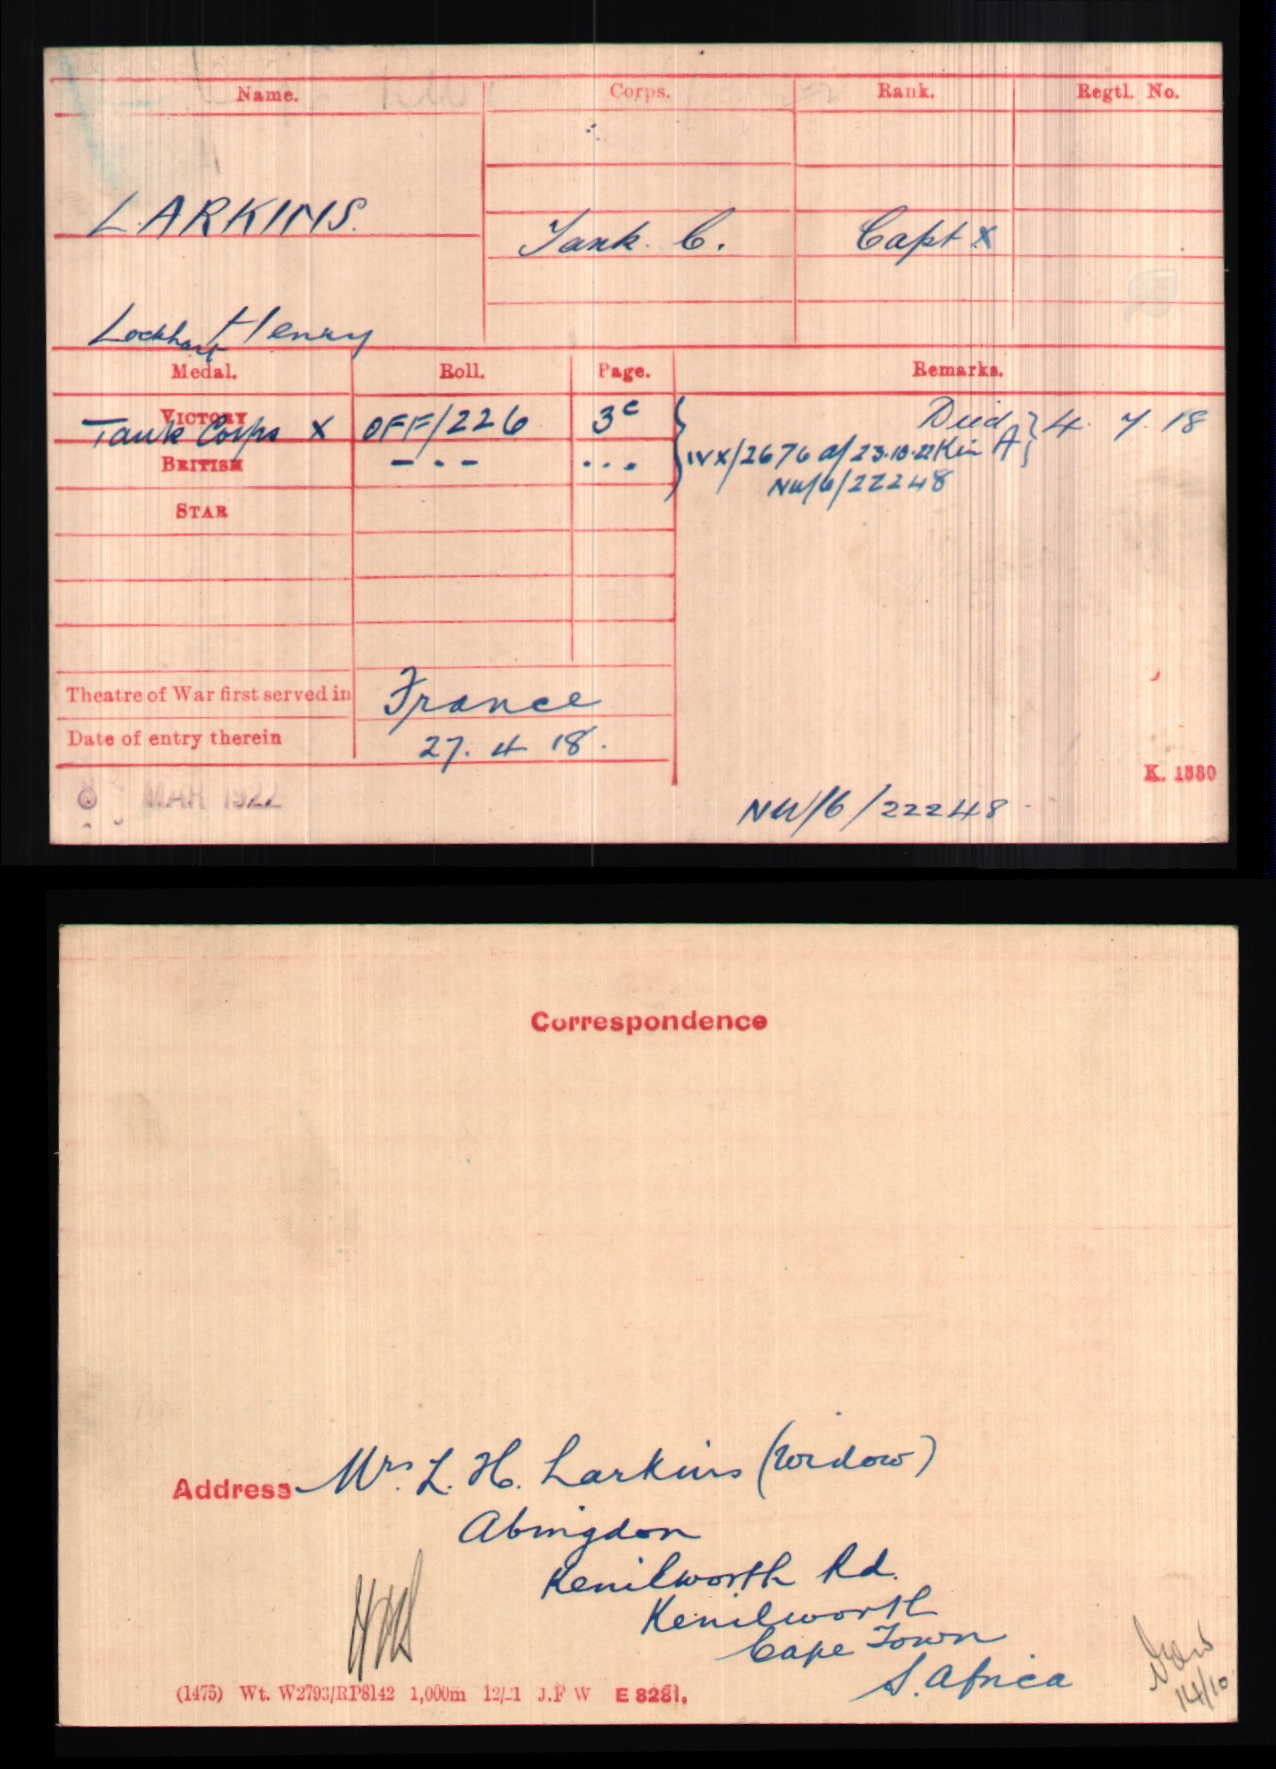 Name. Corps. Rank. Regtl. No.
LARKINS.
Tank. C. Capt x
Lockhart Henry
Medal. Roll. Page. Remarks.
VICTORY
Tank Corps x OFF/226 3c Died } 4. 7. 18
BRITISH - · - ... IVX/2676 d/ 23.10.22 A
NW/6/22248
STAR
Theatre of War first served in France
Date of entry therein 27. 4 18.
MAR 1922
K. 1380
NW/6/22248
Correspondence
Address Mrs. L. H. Larkins (Widow)
Abingdon
Kenilworth Rd.
Kenilworth
Cape Town
S. Africa
14/10
(1475) Wt. W2793/RP8142 1,000m 12/21 J.F W E 8281.